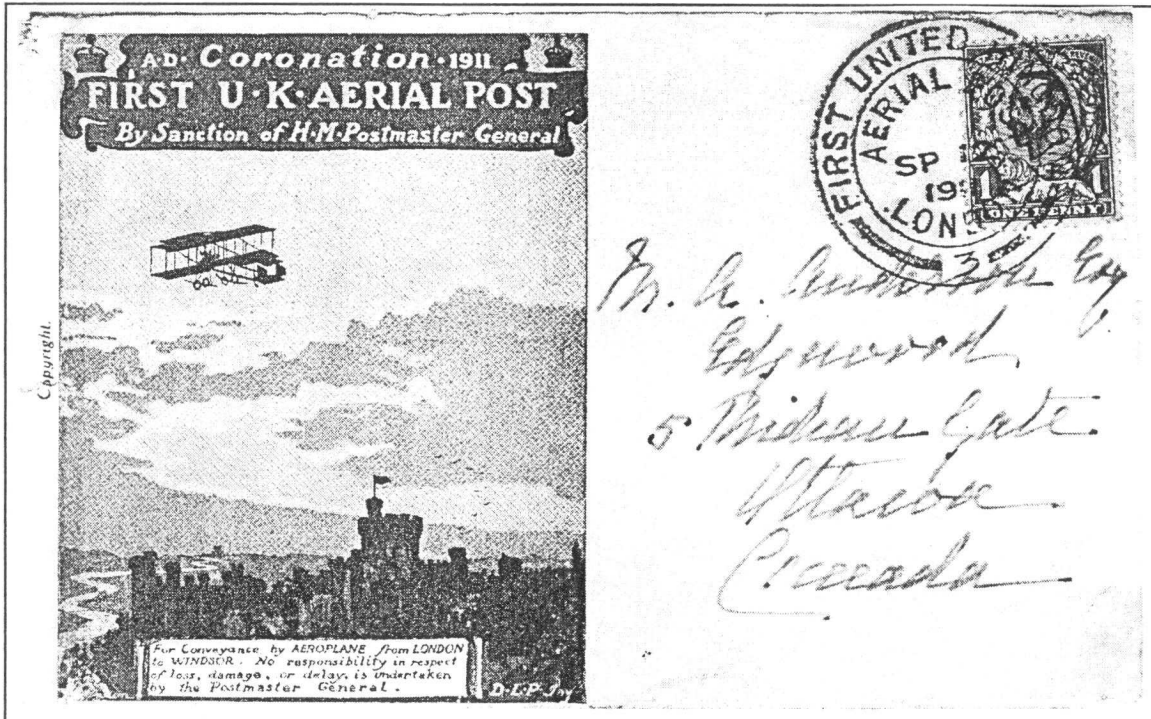 A·D· Coronation · 1911
FIRST U·K·AERIAL POST
By Sanction of H·M·Postmaster General
Copyright.
For Conveyance by AEROPLANE from LONDON
to WINDSOR. No responsibility in respect
of loss, damage, or delay, is undertaken
by the Postmaster General.
FIRST UNITED
AERIAL
SP
19
LON
3
1 1
ONE PENNY
M. A. Anderson Esq
Edgewood
5 Rideau Gate
Ottawa
Canada